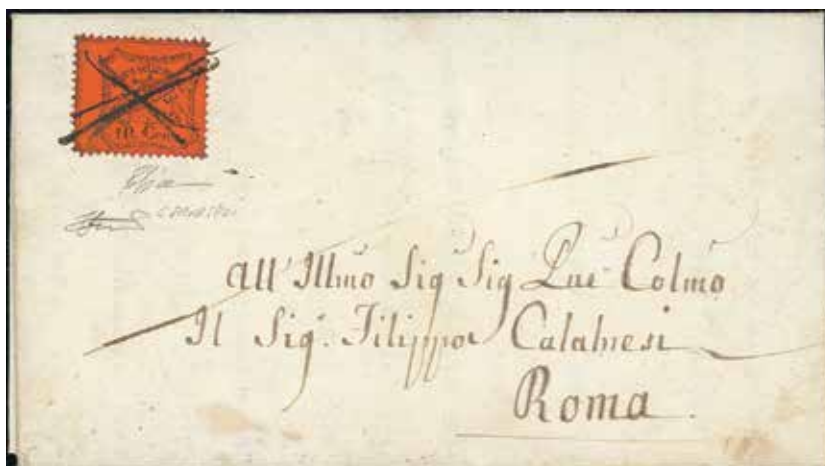 10 Cent
All' Illmo Sig Sig Pne Colmo
Il Sig. Filippo Calabresi
Roma